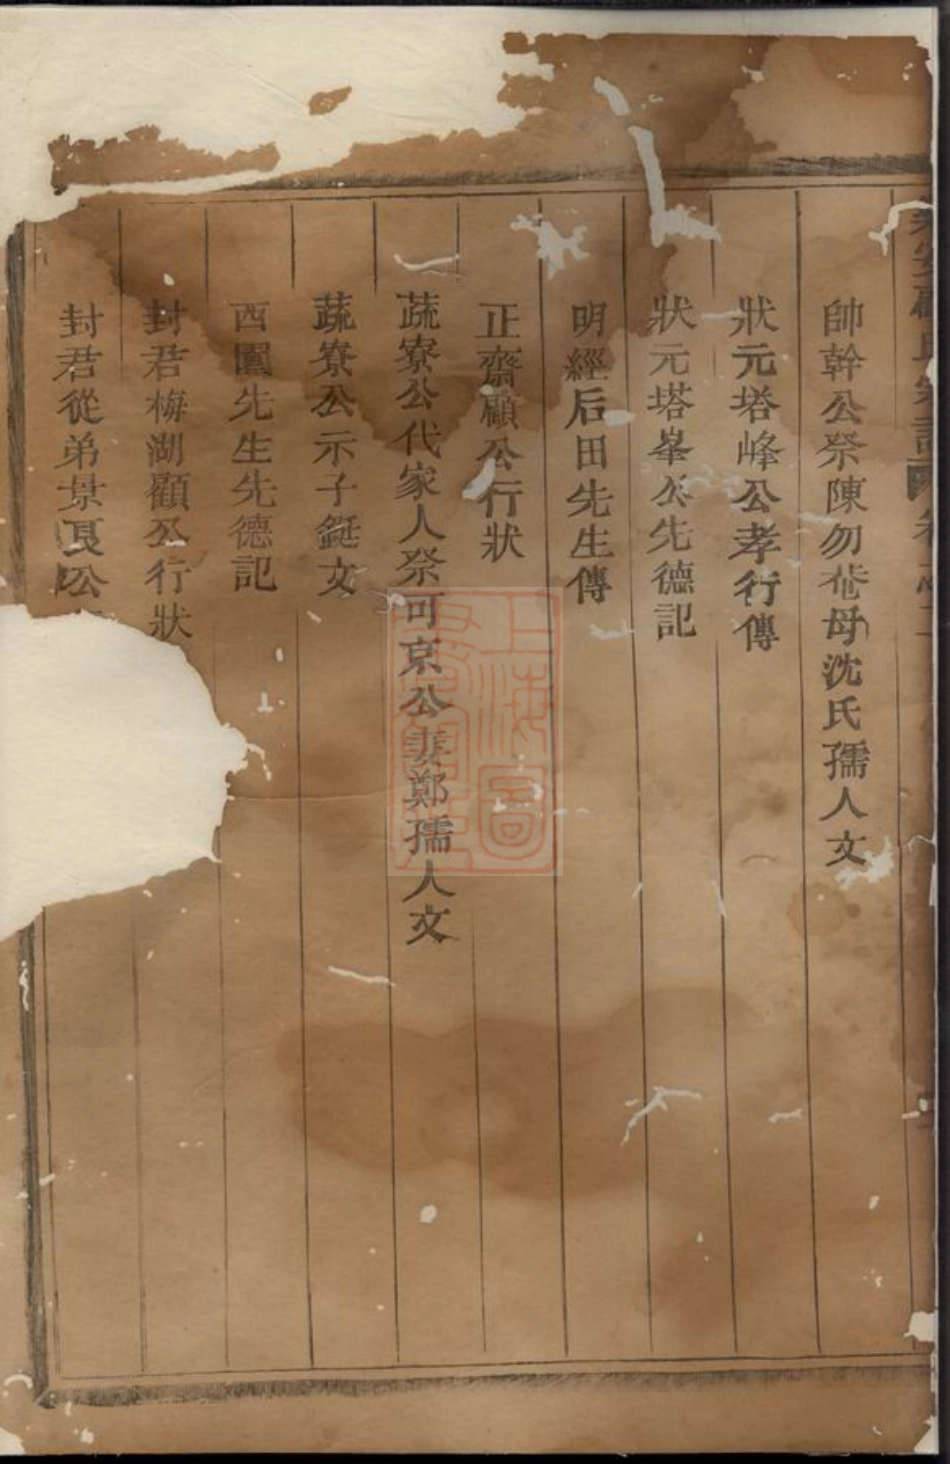 帥幹公祭陳勿母沈氏孺人文
狀元塔峰公孝行傳
狀元塔峯公先德記
明經后田先生傳
正齋顧公行狀
蔬寮公代家人祭可京公妻鄭孺人文
蔬寮公示子鋌文
西園先生先德記
封君梅湖顧公行狀
封君從弟景公
上海圖書館藏